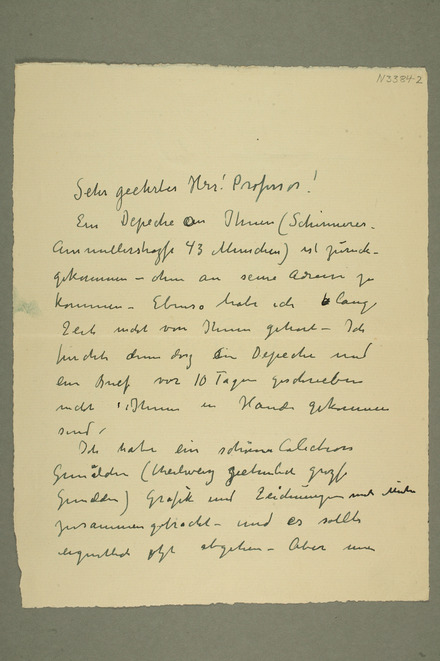 N3384-2
Sehr geehrter Herr Professor!
Ein Depeche an Ihnen (Schirmerer-
Ainmillerstrasse 43 München) ist zurück-
gekommen – ohne an seine Adresse zu
kommen – Ebenso habe ich lange
Zeit nicht von Ihnen gehört – Ich
fürchte denn das ein Depeche und
ein Brief vor 10 Tagen geschrieben
nicht Ihnen in Hande gekommen
sind.
Ich habe ein schöne Colection
Gemälden (theilweise ziehmlich grosse
Gemälden) Grafik und Zeichnungen
zusammengebracht – und es sollte
eigentlich jetzt abgehen – Aber nun